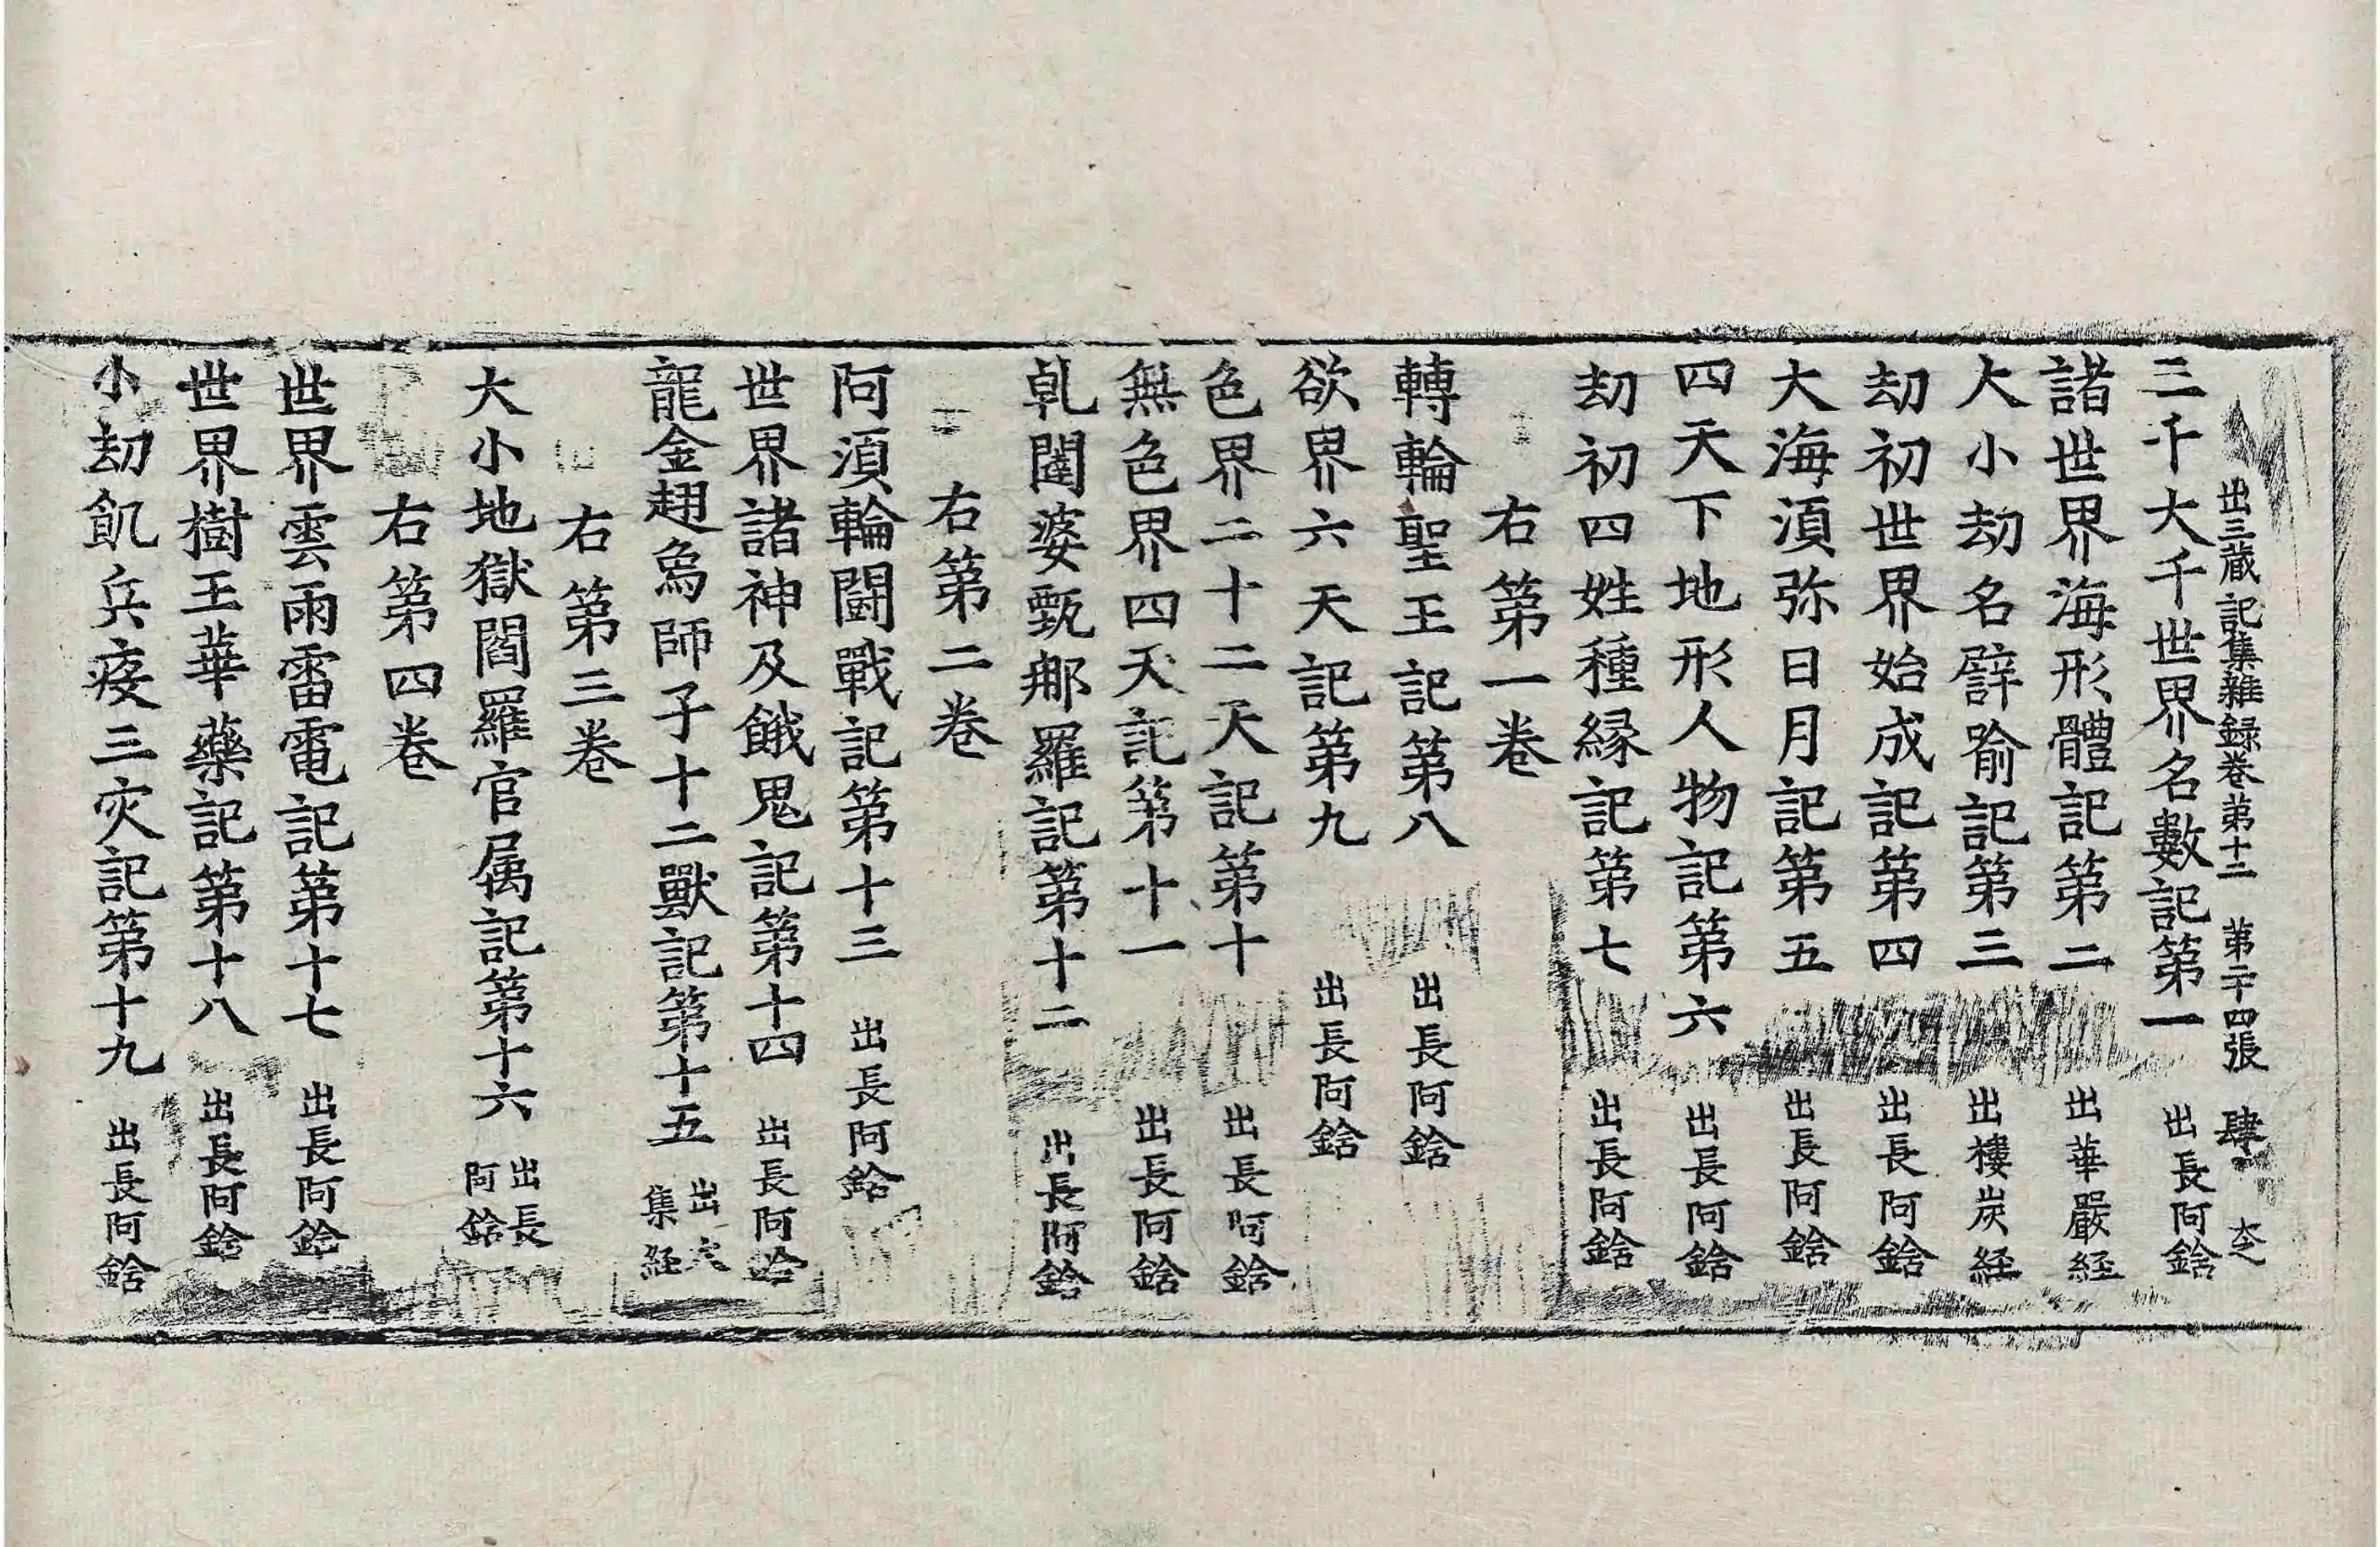 出三蔵記集雜録卷苐十二　苐二十四張　肆
三千大千世界名數記第一　出長阿鋡
諸世界海形體記第二　出華嚴経
大小劫名譬喻記第三　出樓炭経
劫初世界始成記第四　出長阿鋡
大海湏弥日月記第五　出長阿鋡
四天下地形人物記第六　出長阿鋡
劫初四姓種縁記第七　出長阿鋡
右第一卷
轉輪聖王記第八　出長阿鋡
欲界六天記第九　出長阿鋡
色界二十二天記第十　出長阿鋡
無色界四天記第十一　出長阿鋡
乹闥婆甄那羅記第十二　出長阿鋡
右第二卷
阿湏輪鬪戰記第十三　出長阿鋡
世界諸神及餓鬼記第十四　出長阿鋡
龍金翅鳥師子十二獸記第十五　出六集経
右第三卷
大小地獄閻羅官属記第十六　出長阿鋡
右第四卷
世界雲雨雷電記第十七　出長阿鋡
世界樹王華藥記第十八　出長阿鋡
小劫飢兵疫三灾記第十九　出長阿鋡